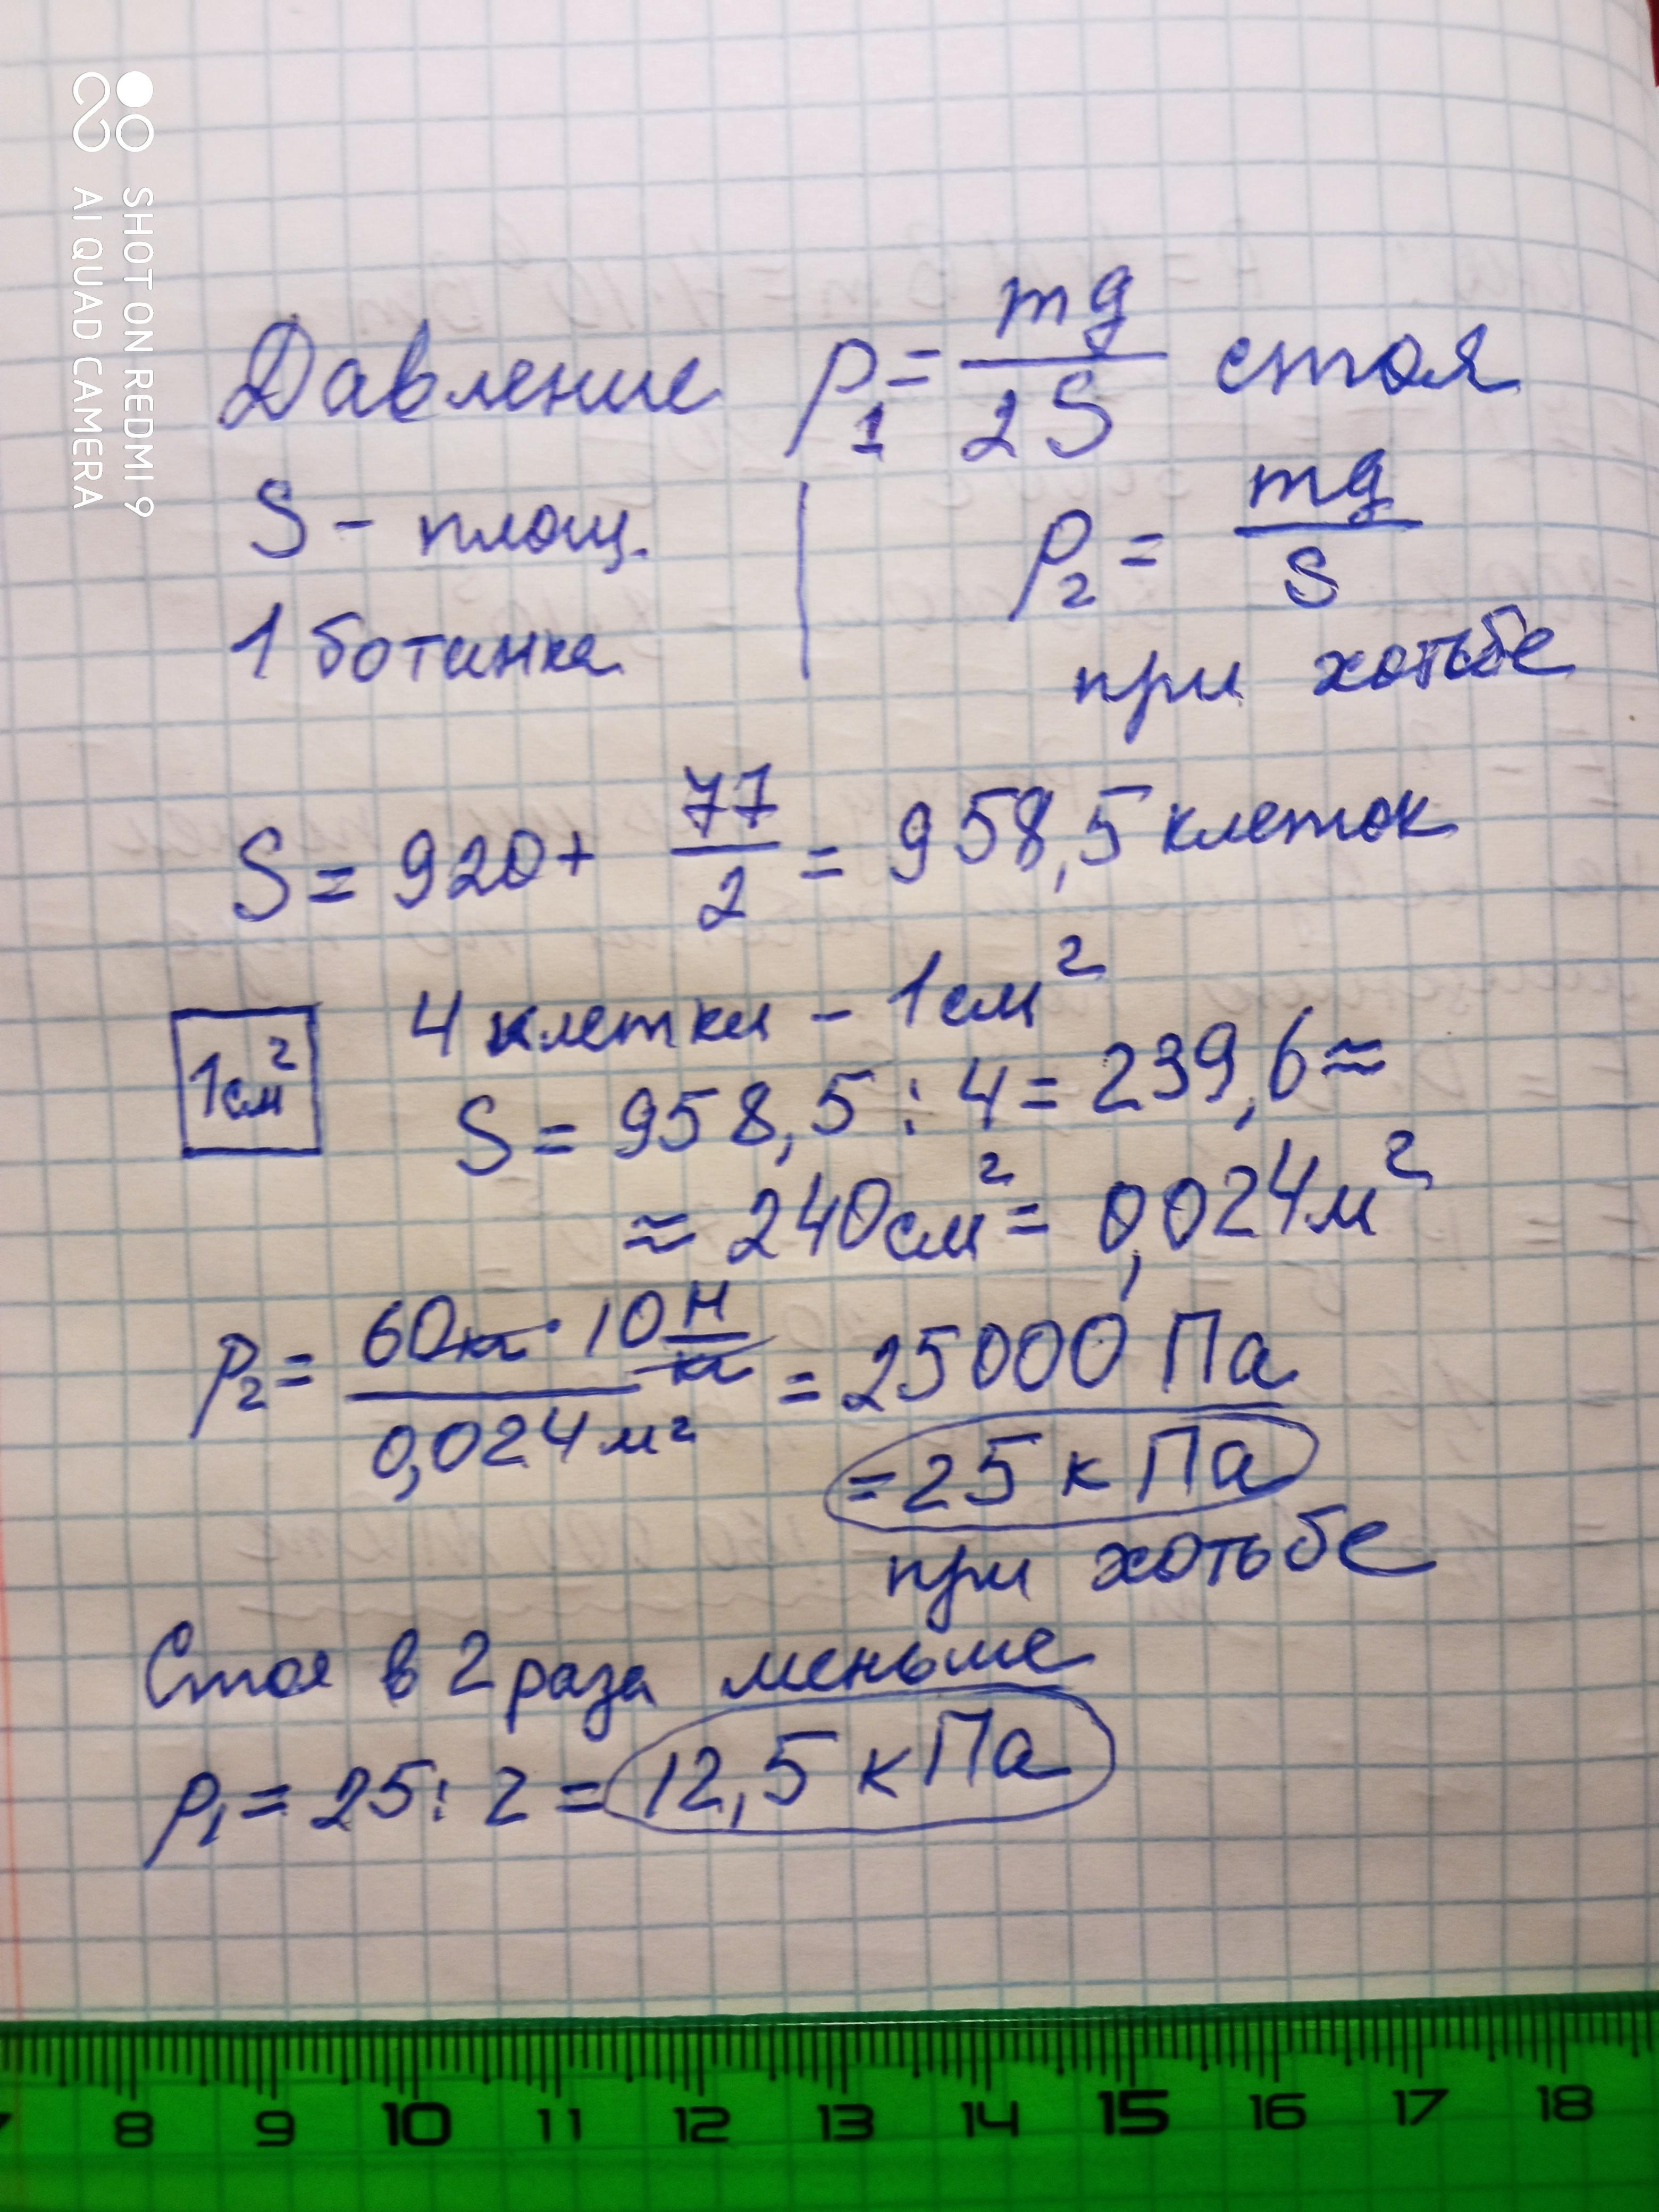 SHOT ON REDMI 9
AI QUAD CAMERA
Давление p₁ = mg / 2S стоя
S – площ.
1 ботинка
p₂ = mg / S
при хотьбе
S = 920 + 77/2 = 958,5 клеток
1 см²
4 клетки – 1 см²
S = 958,5 : 4 = 239,6 ≈
≈ 240 см² = 0,024 м²
p₂ = 60 кг · 10 Н/кг / 0,024 м² = 25000 Па
= 25 кПа
при хотьбе
Стоя в 2 раза меньше
p₁ = 25 : 2 = 12,5 кПа
7 8 9 10 11 12 13 14 15 16 17 18